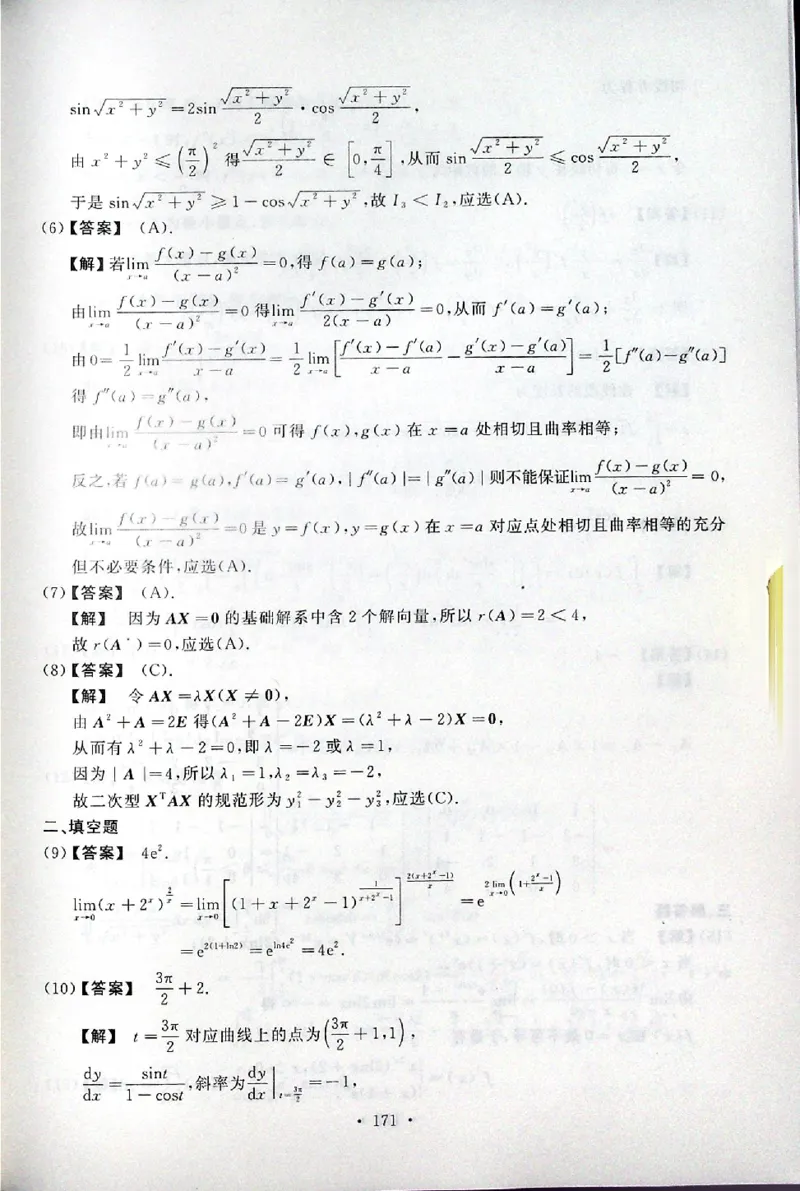 sin√(x²+y²) = 2sin (√(x²+y²))/2 · cos (√(x²+y²))/2,
由 x²+y² ≤ (π/2)² 得 (√(x²+y²))/2 ∈ [0, π/4], 从而 sin (√(x²+y²))/2 ≤ cos (√(x²+y²))/2,
于是 sin√(x²+y²) ≥ 1−cos√(x²+y²), 故 I₃ < I₂, 应选(A).
(6)【答案】 (A).
【解】若 lim_{x→a} (f(x)−g(x))/(x−a)² = 0, 得 f(a)=g(a);
由 lim_{x→a} (f(x)−g(x))/(x−a)² = 0 得 lim_{x→a} (f′(x)−g′(x))/(2(x−a)) = 0, 从而 f′(a)=g′(a);
由 0 = 1/2 lim_{x→a} (f′(x)−g′(x))/(x−a) = 1/2 lim_{x→a} [(f′(x)−f′(a))/(x−a) − (g′(x)−g′(a))/(x−a)] = 1/2 [f″(a)−g″(a)]
得 f″(a)=g″(a),
即由 lim_{x→a} (f(x)−g(x))/(x−a)² = 0 可得 f(x), g(x) 在 x=a 处相切且曲率相等;
反之, 若 f(a)=g(a), f′(a)=g′(a), |f″(a)|=|g″(a)| 则不能保证 lim_{x→a} (f(x)−g(x))/(x−a)² = 0,
故 lim_{x→a} (f(x)−g(x))/(x−a)² = 0 是 y=f(x), y=g(x) 在 x=a 对应点处相切且曲率相等的充分
但不必要条件, 应选(A).
(7)【答案】 (A).
【解】 因为 AX=0 的基础解系中含 2 个解向量, 所以 r(A)=2<4,
故 r(A*)=0, 应选(A).
(8)【答案】 (C).
【解】 令 AX=λX(X≠0),
由 A²+A=2E 得(A²+A−2E)X=(λ²+λ−2)X=0,
从而有 λ²+λ−2=0, 即 λ=−2 或 λ=1,
因为 |A|=4, 所以 λ₁=1, λ₂=λ₃=−2,
故二次型 XᵀAX 的规范形为 y₁²−y₂²−y₃², 应选(C).
二、填空题
(9)【答案】 4e².
lim_{x→0} (x+2ˣ)^{2/x} = lim_{x→0} [(1+x+2ˣ−1)^{1/(x+2ˣ−1)}]^{2(x+2ˣ−1)/x} = e^{2 lim_{x→0} (1+(2ˣ−1)/x)}
= e^{2(1+ln2)} = e^{ln4e²} = 4e².
(10)【答案】 3π/2 + 2.
【解】 t = 3π/2 对应曲线上的点为 (3π/2 + 1, 1),
dy/dx = sint/(1−cost), 斜率为 dy/dx |_{t=3π/2} = −1,
· 171 ·